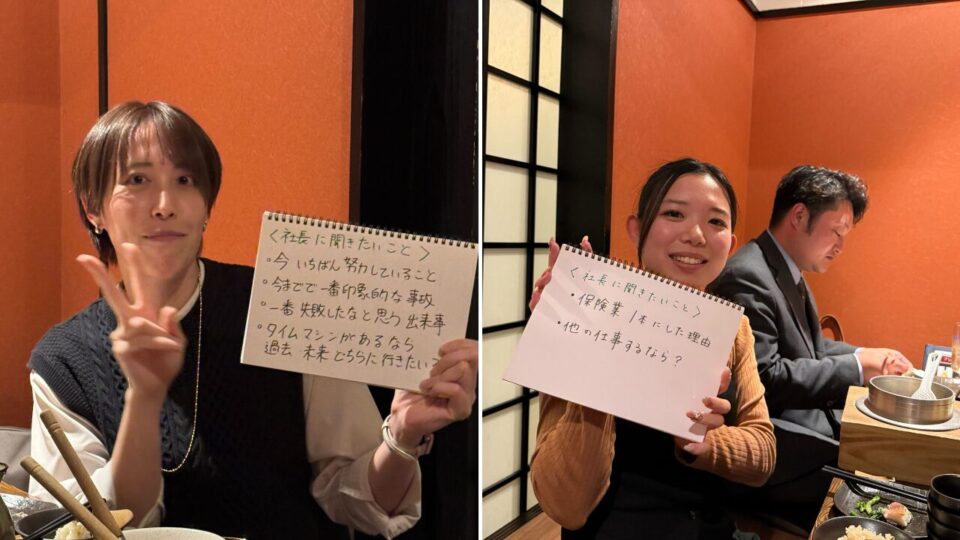 〈社長に聞きたいこと〉
・今いちばん努力していること
・今までで一番印象的な事故
・一番失敗したなと思う出来事
・タイムマシンがあるなら
過去 未来どちらに行きたい?
〈社長に聞きたいこと〉
・保険業1本にした理由
・他の仕事するなら?